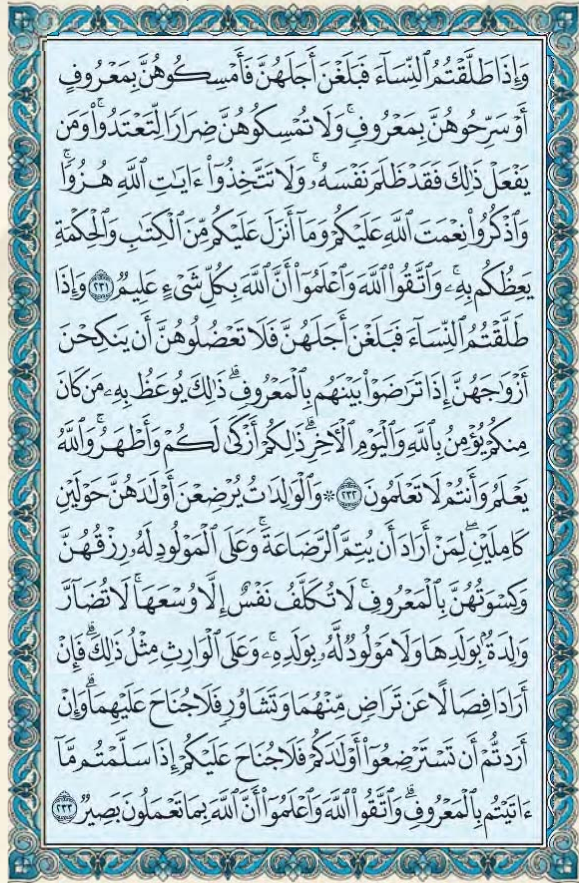 وَإِذَا طَلَّقْتُمُ ٱلنِّسَآءَ فَبَلَغْنَ أَجَلَهُنَّ فَأَمْسِكُوهُنَّ بِمَعْرُوفٍ
أَوْ سَرِّحُوهُنَّ بِمَعْرُوفٍ ۚ وَلَا تُمْسِكُوهُنَّ ضِرَارًا لِّتَعْتَدُوا۟ ۚ وَمَن
يَفْعَلْ ذَٰلِكَ فَقَدْ ظَلَمَ نَفْسَهُۥ ۚ وَلَا تَتَّخِذُوٓا۟ ءَايَٰتِ ٱللَّهِ هُزُوًا ۚ
وَٱذْكُرُوا۟ نِعْمَتَ ٱللَّهِ عَلَيْكُمْ وَمَآ أَنزَلَ عَلَيْكُم مِّنَ ٱلْكِتَٰبِ وَٱلْحِكْمَةِ
يَعِظُكُم بِهِۦ ۚ وَٱتَّقُوا۟ ٱللَّهَ وَٱعْلَمُوٓا۟ أَنَّ ٱللَّهَ بِكُلِّ شَىْءٍ عَلِيمٌ ٢٣١ وَإِذَا
طَلَّقْتُمُ ٱلنِّسَآءَ فَبَلَغْنَ أَجَلَهُنَّ فَلَا تَعْضُلُوهُنَّ أَن يَنكِحْنَ
أَزْوَٰجَهُنَّ إِذَا تَرَٰضَوْا۟ بَيْنَهُم بِٱلْمَعْرُوفِ ۗ ذَٰلِكَ يُوعَظُ بِهِۦ مَن كَانَ
مِنكُمْ يُؤْمِنُ بِٱللَّهِ وَٱلْيَوْمِ ٱلْءَاخِرِ ۗ ذَٰلِكُمْ أَزْكَىٰ لَكُمْ وَأَطْهَرُ ۗ وَٱللَّهُ
يَعْلَمُ وَأَنتُمْ لَا تَعْلَمُونَ ٢٣٢ * وَٱلْوَٰلِدَٰتُ يُرْضِعْنَ أَوْلَٰدَهُنَّ حَوْلَيْنِ
كَامِلَيْنِ ۖ لِمَنْ أَرَادَ أَن يُتِمَّ ٱلرَّضَاعَةَ ۚ وَعَلَى ٱلْمَوْلُودِ لَهُۥ رِزْقُهُنَّ
وَكِسْوَتُهُنَّ بِٱلْمَعْرُوفِ ۚ لَا تُكَلَّفُ نَفْسٌ إِلَّا وُسْعَهَا ۚ لَا تُضَآرَّ
وَٰلِدَةٌۢ بِوَلَدِهَا وَلَا مَوْلُودٌ لَّهُۥ بِوَلَدِهِۦ ۚ وَعَلَى ٱلْوَارِثِ مِثْلُ ذَٰلِكَ ۗ فَإِنْ
أَرَادَا فِصَالًا عَن تَرَاضٍ مِّنْهُمَا وَتَشَاوُرٍ فَلَا جُنَاحَ عَلَيْهِمَا ۗ وَإِنْ
أَرَدتُّمْ أَن تَسْتَرْضِعُوٓا۟ أَوْلَٰدَكُمْ فَلَا جُنَاحَ عَلَيْكُمْ إِذَا سَلَّمْتُم مَّآ
ءَاتَيْتُم بِٱلْمَعْرُوفِ ۗ وَٱتَّقُوا۟ ٱللَّهَ وَٱعْلَمُوٓا۟ أَنَّ ٱللَّهَ بِمَا تَعْمَلُونَ بَصِيرٌ ٢٣٣